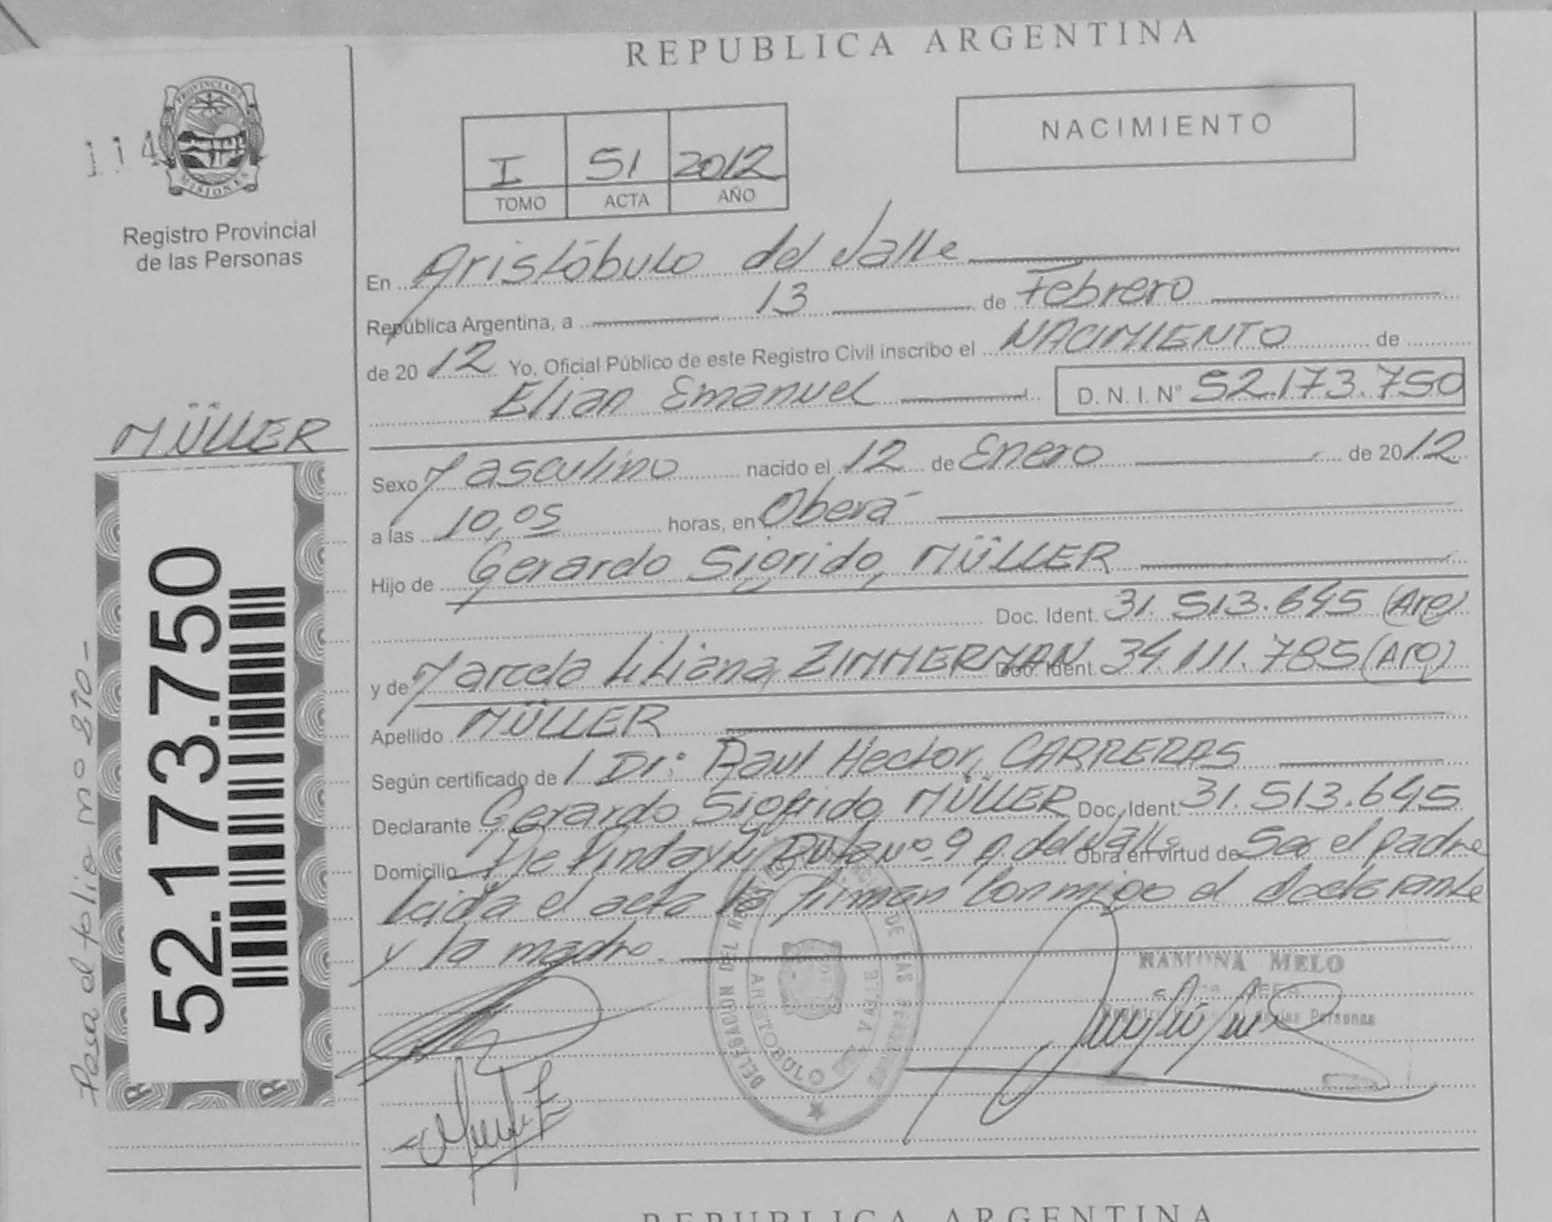 REPUBLICA ARGENTINA
114
PROVINCIA DE MISIONES
Registro Provincial
de las Personas
I 51 2012
TOMO ACTA AÑO
NACIMIENTO
En Aristóbulo del Valle
República Argentina, a 13 de Febrero
de 2012 Yo, Oficial Público de este Registro Civil inscribo el NACIMIENTO de
Elian Emanuel D. N. I. N° 52.173.750
MÜLLER
Sexo Masculino nacido el 12 de Enero de 2012
a las 10,05 horas, en Oberá
Hijo de Gerardo Sigrido, MÜLLER
Doc. Ident. 31.513.645 (Arg)
y de Marcela Liliana, ZIMMERMAN Doc. Ident. 34.111.785 (Arg)
Apellido MÜLLER
Según certificado de 1 Dr: Raul Hector, CARRERAS
Declarante Gerardo Sigfrido MÜLLER Doc. Ident. 31.513.645
Domicilio Ruta nº 9 A. del Valle Obra en virtud de Ser el padre
Leida el acta la firman conmigo el declarante
y la madre.
52.173.750
Pasa el folio nº 270-
DELEGACION DEL REGISTRO DE LAS PERSONAS
ARISTOBULO DEL VALLE
RAMONA MELO
Registro de las Personas
REPUBLICA ARGENTINA